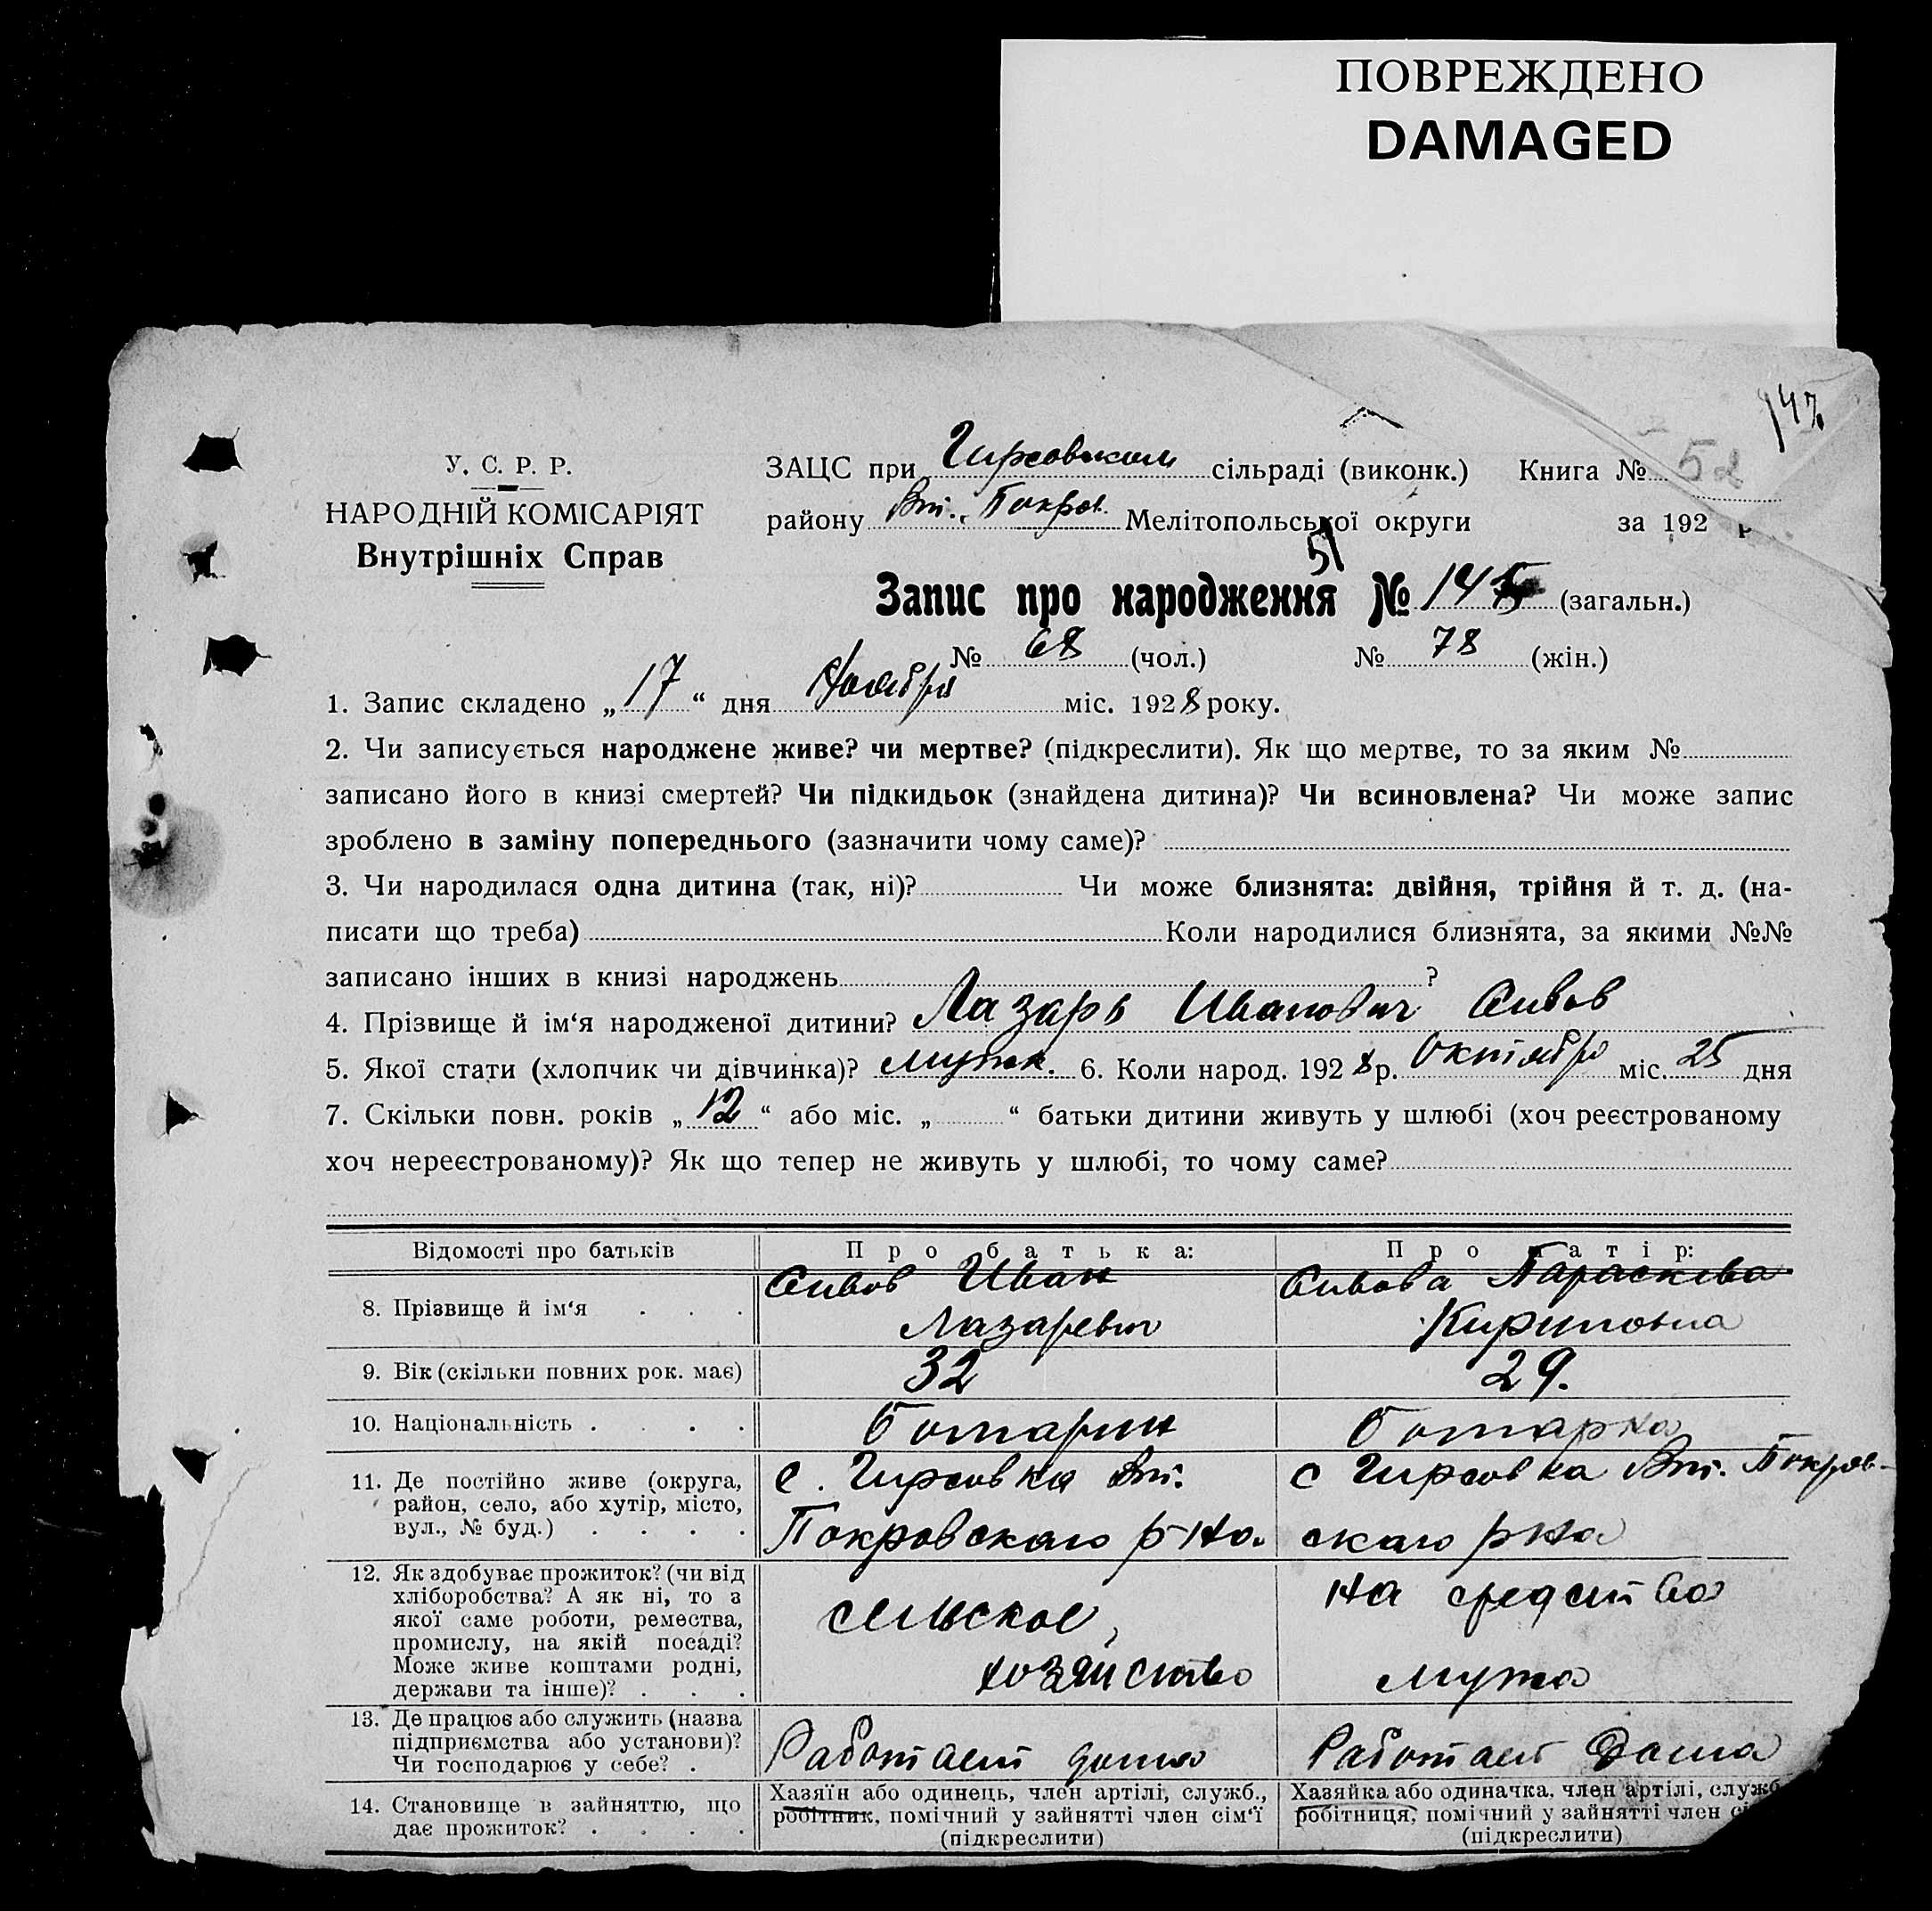 ПОВРЕЖДЕНО
DAMAGED
147
У. С. Р. Р.
НАРОДНІЙ КОМІСАРІЯТ
Внутрішніх Справ
ЗАЦС при Гирсовском сільраді (виконк.) Книга № 52
району Вт. Покров. Мелітопольської округи за 192 р
51
Запис про народження № 145 (загальн.)
№ 68 (чол.) № 78 (жін.)
1. Запис складено „17“ дня Ноября міс. 1928 року.
2. Чи записується народжене живе? чи мертве? (підкреслити). Як що мертве, то за яким №
записано його в книзі смертей? Чи підкидьок (знайдена дитина)? Чи всиновлена? Чи може запис
зроблено в заміну попереднього (зазначити чому саме)?
3. Чи народилася одна дитина (так, ні)? Чи може близнята: двійня, трійня й т. д. (на-
писати що треба) Коли народилися близнята, за якими №№
записано інших в книзі народжень ?
4. Прізвище й ім‘я народженої дитини? Лазарь Иванович Сивов
5. Якої стати (хлопчик чи дівчинка)? мужк. 6. Коли народ. 1928 р. Октября міс. 25 дня
7. Скільки повн. років „12“ або міс. „ “ батьки дитини живуть у шлюбі (хоч реєстрованому
хоч нереєстрованому)? Як що тепер не живуть у шлюбі, то чому саме?
Відомості про батьків Про батька: Про матір:
8. Прізвище й ім‘я . . . Сивов Иван Сивова Параскева
Лазаревич Кириловна
9. Вік (скільки повних рок. має) 32 29.
10. Національність . . . . болгарин болгарка
11. Де постійно живе (округа, с. Гирсовка Вт. с Гирсовка Вт. Покров-
район, село, або хутір, місто,
вул., № буд.) . . . . Покровскаго р-на. скаго рна
12. Як здобуває прожиток? (чи від
хліборобства? А як ні, то з на средства
якої саме роботи, ремества, сельское
промислу, на якій посаді?
Може живе коштами родні, хозяйство мужа
держави та інше)? . . .
13. Де працює або служить (назва
підприємства або установи)? Работает дома Работает Дома
Чи господарює у себе? .
14. Становище в зайняттю, що Хазяїн або одинець, член артілі, служб., Хазяйка або одиначка, член артілі, служб
дає прожиток? . . . . робітник, помічний у зайнятті член сім‘ї робітниця, помічний у зайнятті член сі
(підкреслити) (підкреслити)